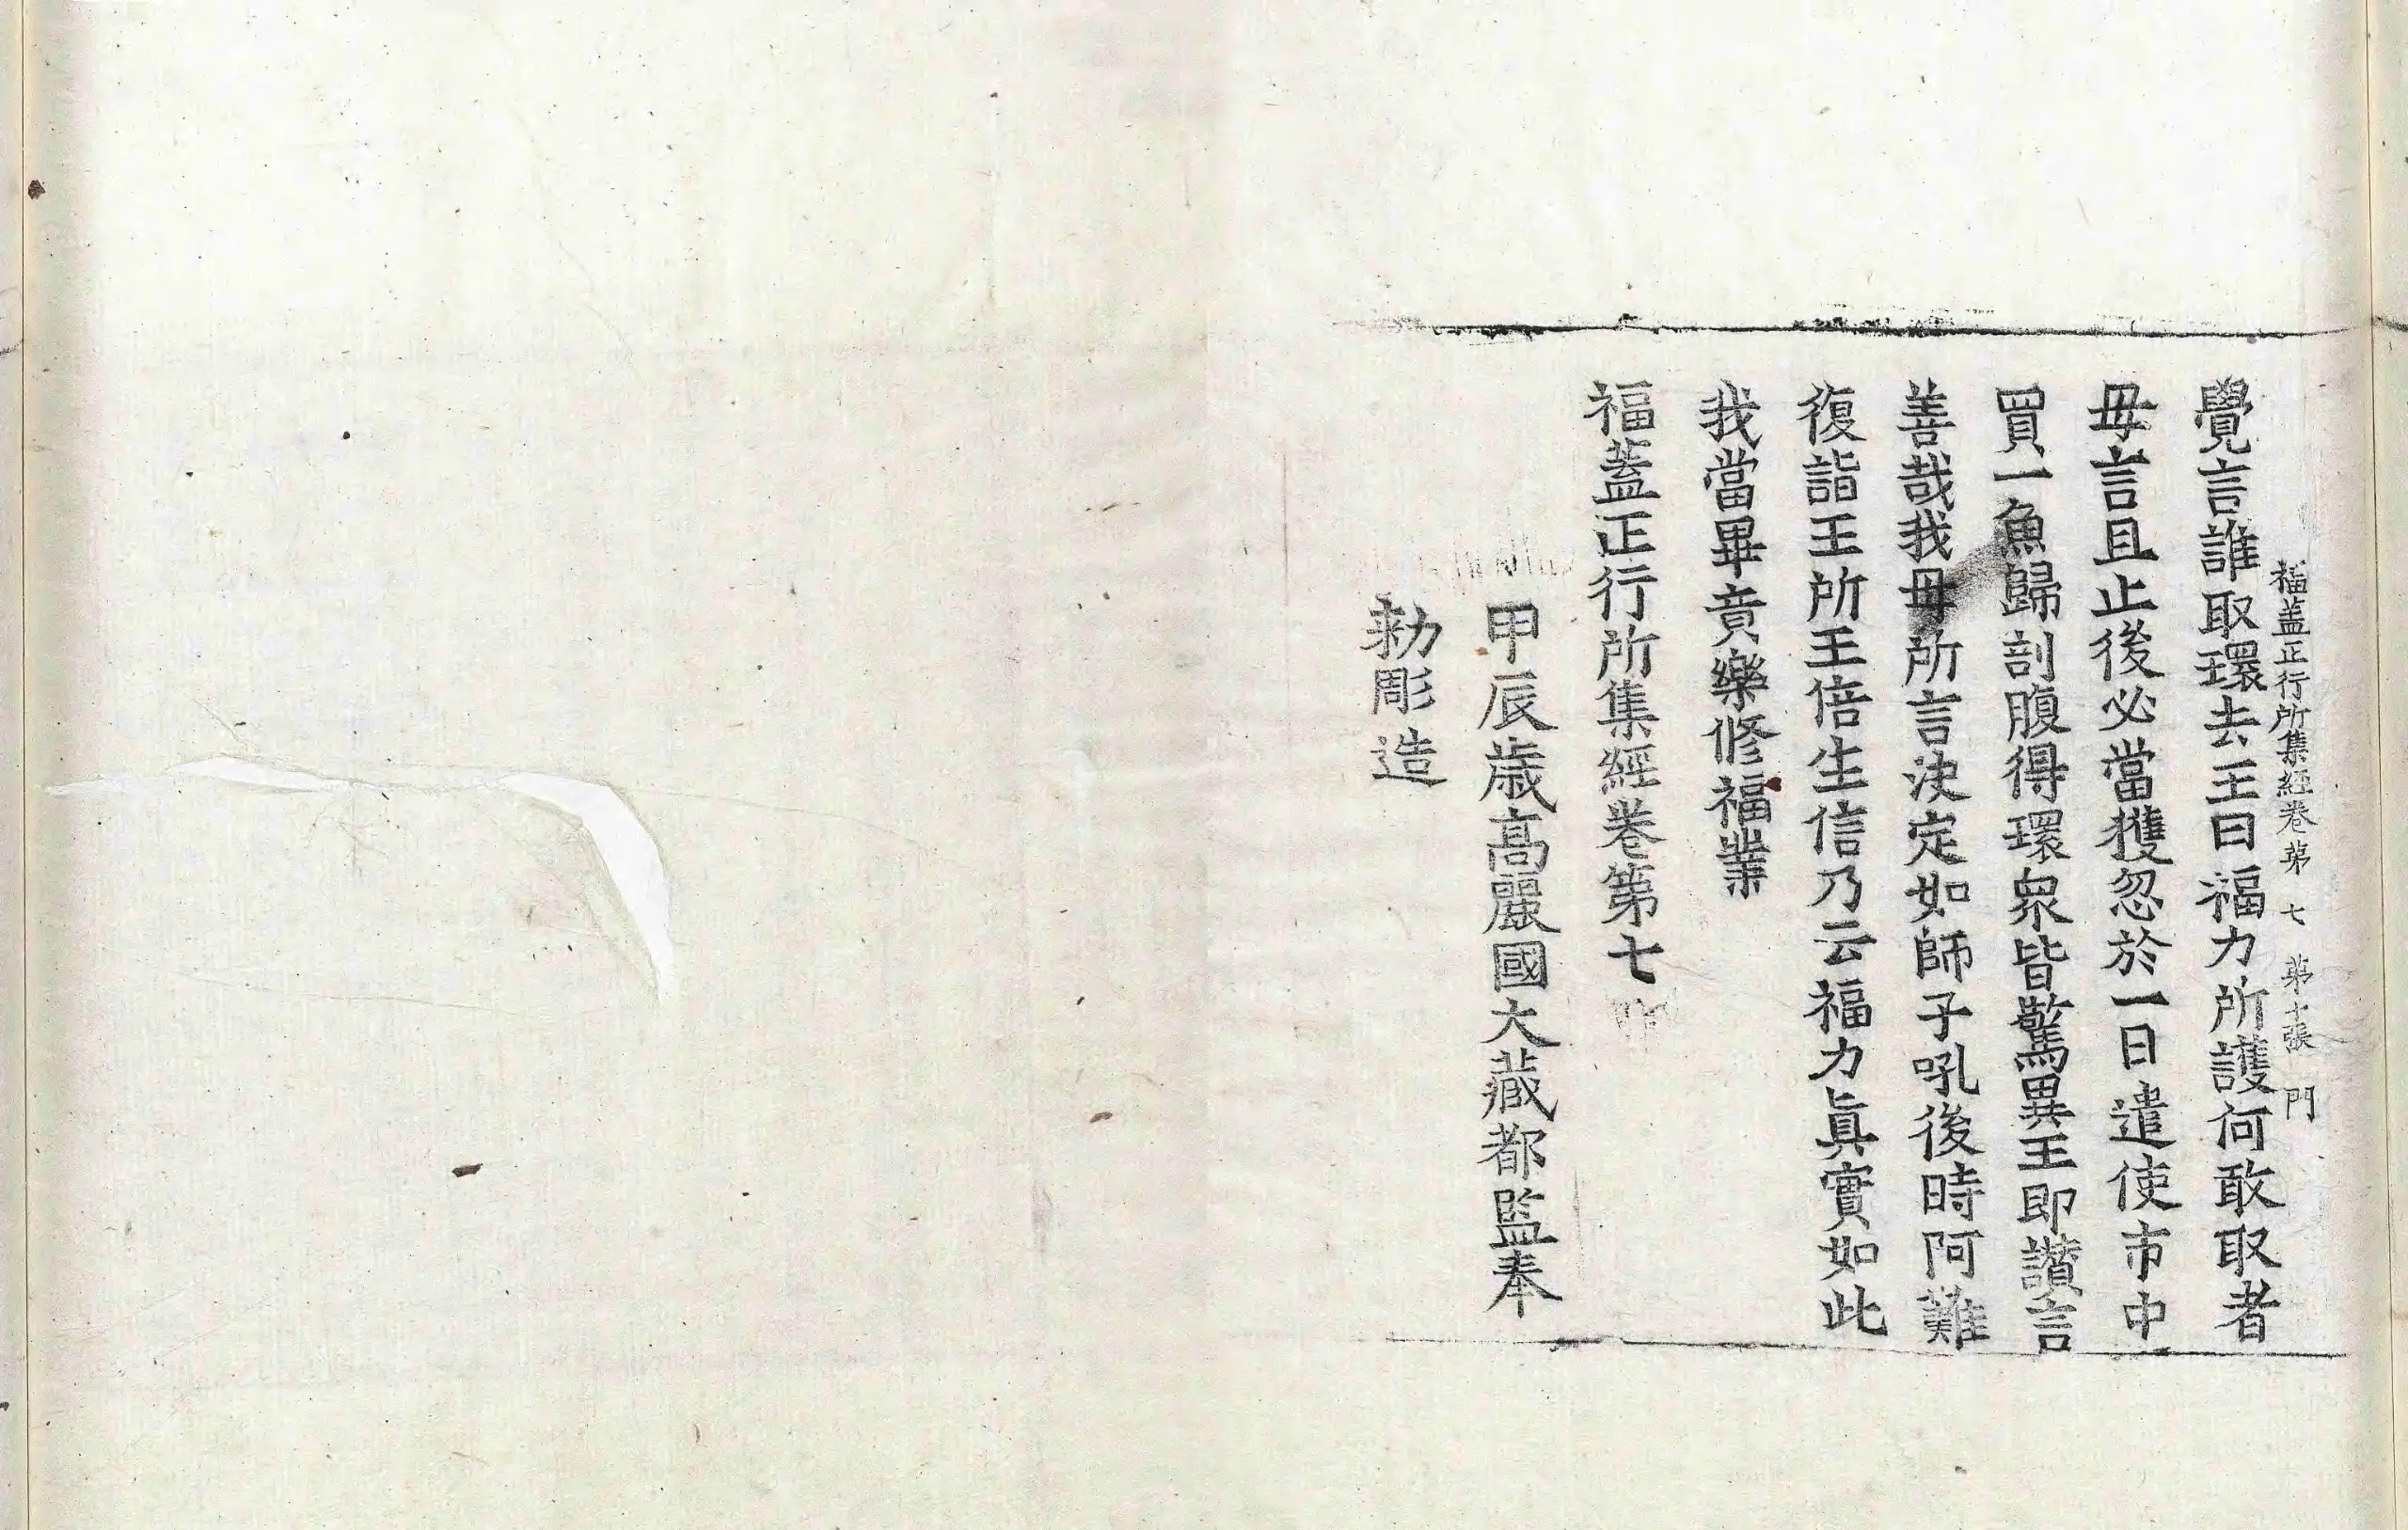 福蓋正行所集經卷第七 第十張 門
覺言誰取環去王曰福力所護何敢取者
母言且止後必當獲忽於一日遣使市中
買一魚歸剖腹得環衆皆驚異王即讚言
善哉我母所言決定如師子吼後時阿難
復詣王所王倍生信乃云福力眞實如此
我當畢竟樂修福業
福蓋正行所集經卷第七
甲辰歲高麗國大藏都監奉
勅彫造